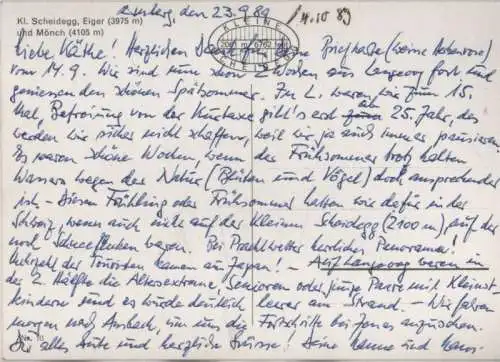 Kl. Scheidegg, Eiger (3975 m)
und Mönch (4105 m)
KLEINE
2061 m 6762
SCHEIDEGG
den 23.9.89
4.10.89
Liebe Käthe! Herzlichen Dank für Deine
vom 17.9. Wir sind nun schon 2 Wochen aus Langeoog fort und
geniessen den schönen Spätsommer. In L. waren wir zum 15.
Mal, Befreiung von der Kurtaxe gibt's erst ab 25. Jahr, das
werden wir sicher nicht schaffen, weil wir ja auch immer pausieren.
Es waren schöne Wochen, wenn der Frühsommer trotz kalten
Wassers wegen der Natur (Blüten und Vögel) doch ansprechender
ist. – Diesen Frühling oder Frühsommer hatten wir dafür in der
Schweiz, wenn auch nicht auf der Kleinen Scheidegg (2100 m), auf der
noch Schneeflecken waren. Bei Prachtwetter herrliches Panorama!
Mehrzahl der Touristen kamen aus Japan! – Auf Langeoog waren in
der 2. Hälfte die Altersextreme, Senioren oder junge Paare mit Kleinst-
kindern und es wurde deutlich leerer am Strand. – Wir fahren
morgen nach Ansbach, um uns die Fortschritte bei Jonas anzuschauen.
Dir alles Gute und herzliche Grüsse! Deine Hanne und Hans.
Nr. 10